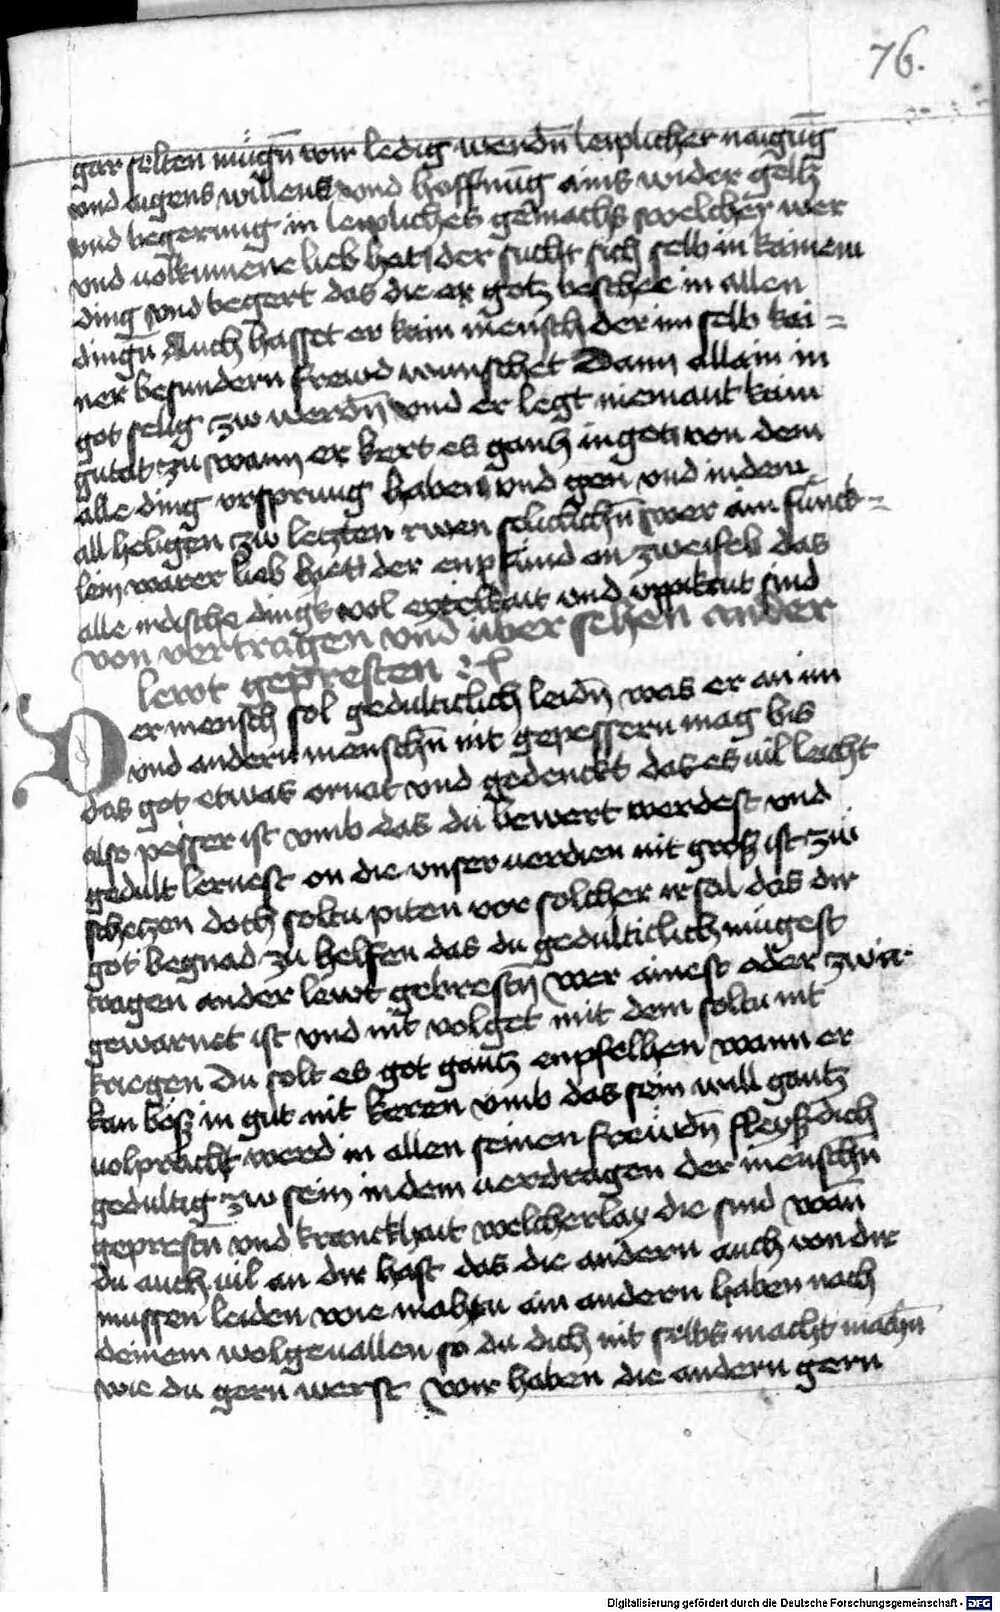 76.
gar selten mügn̄ wir ledig werdn̄ leiplicher naigūg
vnd aigens willens vnd hoffnūg ains wider geltz
vnd begerung in leipliches gemachs welcher wer
vnd volkumene lieb het der sucht sich selb in kainem
ding vnd begert das die er gotz beschee in allen
dingn̄ Auch hasset er kain mensch der im selb kai=
ner besundern frewd wunschet Dann allain in
got selig zw werdn̄ vnd er legt niemant kain
gutat zu wann er kert es gantz in got von dem
alle ding vrsprung haben vnd gen vnd in dem
all heligen zw letzten rwen seliclichn̄ wer ain funck=
lein warer lieb hiet der enpfund on zweifel das
alle irdische dings vol eytelkait vnd üppikait sind
von vertragen vnd über sehen ander
lewt gepresten
Der mensch sol gedulticlich leidn̄ was er an im
vnd andern menschn̄ nit gepessern mag bis
das got etwas ornat vnd gedenckt das es vil leicht
also pesser ist vmb das du bewert werdest vnd
gedult lernest on die vnser verdien nit groß ist zw
schetzen doch soltu piten vor solcher irsal das dir
got begnad zu helfen das du gedulticlich mügest
tragen ander lewt gebrestn̄ wer ainest oder zwir
gewarnet ist vnd nit volget mit dem soltu nit
kriegen Du solt es got gantz enpfelhen wann er
kan böß in gut nit keren vmb das sein will gantz
volpracht werd in allen seinen frewdn̄ fleyß dich
gedultig zw sein in dem verdragen der menschn̄
geprestn̄ vnd kranckhait welcherlay die sind wan̄
du auch vil an dir hast das die andern auch von dir
mussen leiden wie mahtu ain andern haben nach
deinem wolgevallen so du dich nit selbs macht machn̄
wie du gern werst wir haben die andern gern
Digitalisierung gefördert durch die Deutsche Forschungsgemeinschaft - DFG